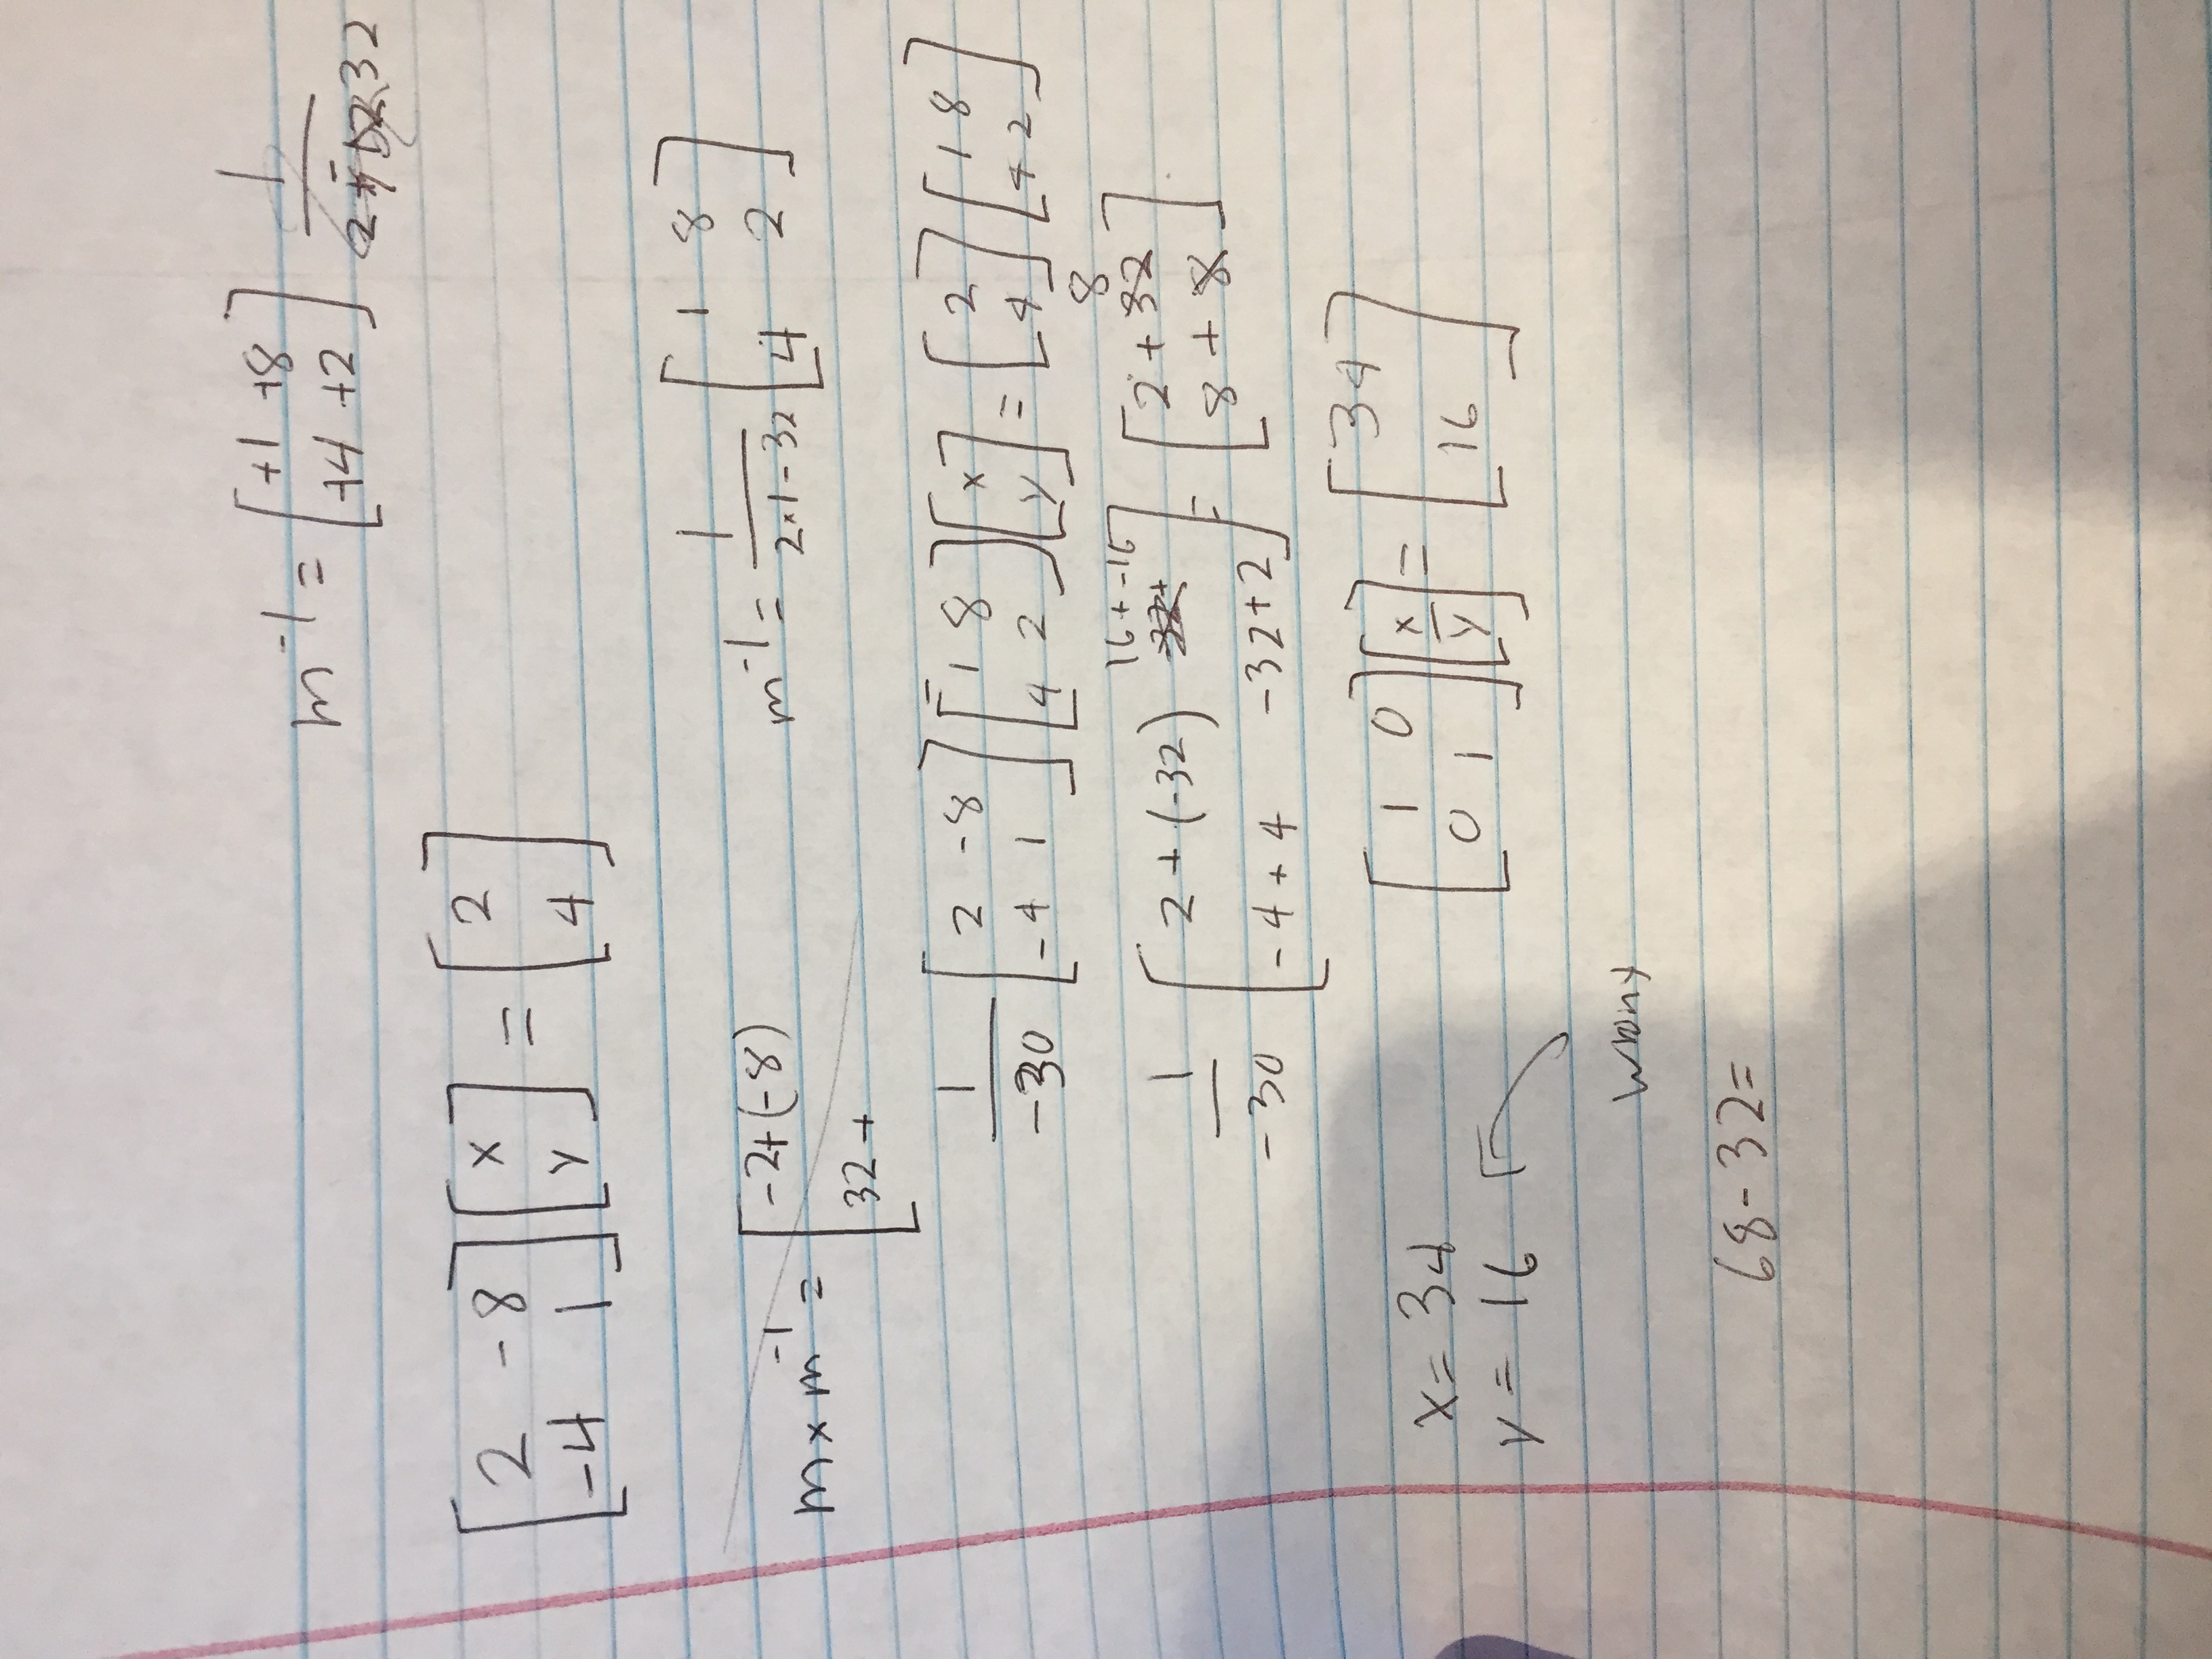 m⁻¹ = [+1 +8
+4 +2] 1/32
[2 -8
-4 1] [x
y] = [2
4]
m × m⁻¹ = [-2+(-8)
32 +
m⁻¹ = 1/(2×1-32) [1 8
4 2]
1/-30 [2 -8
-4 1] [1 8
4 2] [x
y] = [2
4] [1 8
4 2]
1/-30 [2 + (-32) 16 + -16
-4 + 4 -32 + 2] = [2 + 32 8
8 + 8]
[1 0
0 1] [x
y] = [34
16]
x = 34
y = 16
wrong
68 - 32 =